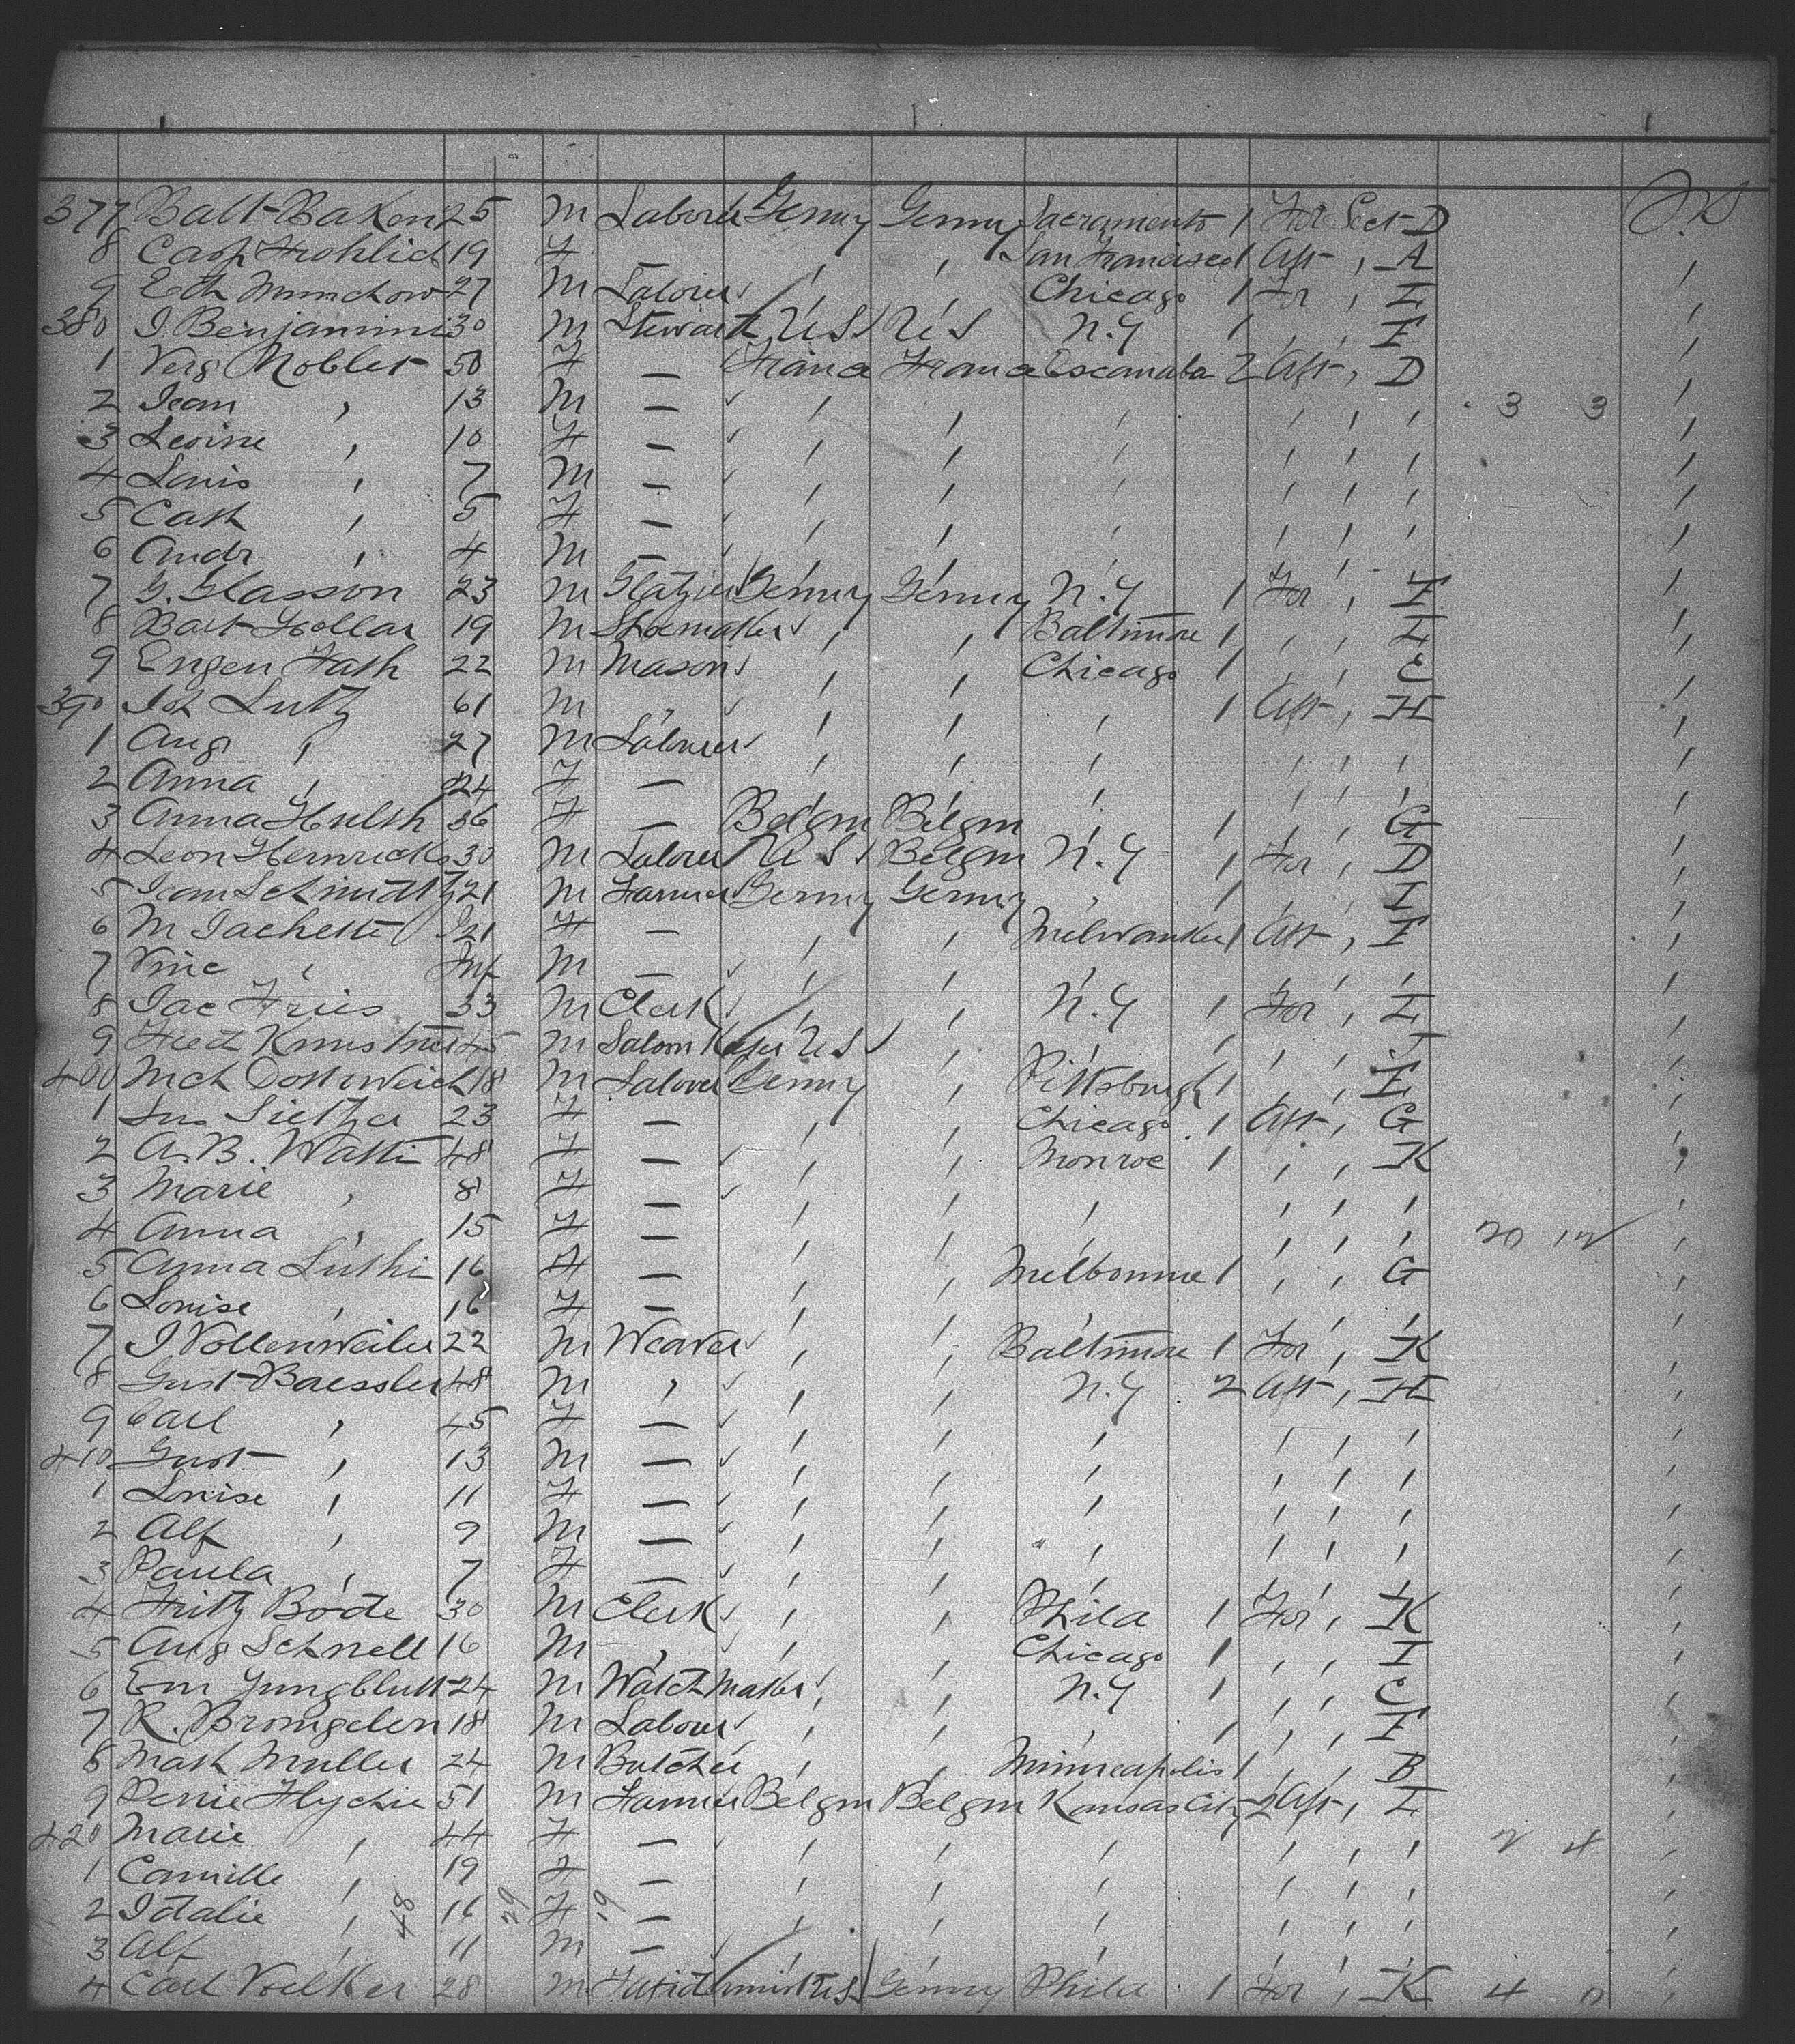 377 Balt Baken 25 M Laborer Germy Germy Sacramento 1 For Sect D P.S
8 Casp Frohlich 19 F — , , San Francisco 1 Aft , A ,
9 Eth Munchow 27 M Laborer , , Chicago 1 For , I ,
380 I. Benjamini 30 M Stewart U S U S N.Y 1 , , F ,
1 Verg Noblet 50 F — France France Escanaba 2 Aft , D ,
2 Jean , 13 M — , , , , , , 3 3 ,
3 Leoine , 10 F — , , , , , , ,
4 Louis , 7 M — , , , , , , ,
5 Cath , 5 F — , , , , , , ,
6 Andr , 4 M — , , , , , , ,
7 G. Glasson 23 M Glazier Germy Germy N.Y 1 For , F ,
8 Bart Hollar 19 M Shoemaker , , Baltimore 1 , , I ,
9 Eugen Fath 22 M Mason , , Chicago 1 , , E ,
390 Jos Lutz 61 M , , , , 1 Aft , H ,
1 Aug , 27 M Labourer , , , , , , ,
2 Anna , 24 F — , , , , , , ,
3 Anna Hulsh 36 F — Belgm Belgm , 1 , , G ,
4 Leon Heinricks 30 M Laborer U S Belgm N.Y 1 For , D ,
5 Jean Schmidtz 21 M Farmer Germy Germy , 1 , , I ,
6 M Jachette 21 F — , , Milwaukee 1 Aft , F ,
7 Vinc , Inf M — , , , , , , ,
8 Jac Fries 33 M Clerk , , N.Y 1 For , I ,
9 45 M Saloon Keeper U S , , , , , ,
400 Mch 18 M Laborer Germy , Pittsburgh 1 , , I ,
1 23 F — , , Chicago 1 Aft , G ,
2 A. B. 48 F — , , Monroe 1 , , K ,
3 Marie , 8 F — , , , , , , ,
4 Anna , 15 F — , , , , , , 20 12 ,
5 Anna Luthi 16 F — , , Melbourne 1 , , G ,
6 Louise , 16 F — , , , , , , ,
7 J Vollenweiler 22 M Weaver , , Baltimore 1 For , K ,
8 Gust Baessler 48 M , , , N.Y 2 Aft , H ,
9 Carl , 45 F — , , , , , , ,
410 Gust , 13 M — , , , , , , ,
1 Louise , 11 F — , , , , , , ,
2 Alf , 9 M — , , , , , , ,
3 Paula , 7 F — , , , , , , ,
4 Fritz Bode 30 M Clerk , , Phila 1 For , K ,
5 Aug Schnell 16 M , , , Chicago 1 , , I ,
6 Em Jungblutt 24 M Watchmaker , , N.Y 1 , , C ,
7 R. 18 M Labour , , , 1 , , F ,
8 Math Muller 24 M Butcher , , Minneapolis 1 , , B ,
9 51 M Farmer Belgm Belgm Kansas City 2 Aft , I ,
420 Marie , 44 F — , , , , , , 2 4 ,
1 Camille , 19 F — , , , , , , ,
2 Idalie , 48 16 29 F 19 — , , , , , , ,
3 Alf , 11 M — , , , , , , ,
4 Carl Voelker 28 M U S Germy Phila 1 For , K 4 ,